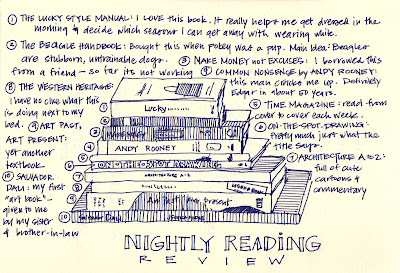 ① THE LUCKY STYLE MANUAL: I LOVE this book. It really helps me get dressed in the
morning & decide which seasonor I can get away with wearing while.
② The BEAGLE HANDBOOK: Bought this when pokey was a pup. Main idea: Beagles
are stubborn, untrainable dogs.
③ MAKE MONEY not EXCUSES: I borrowed this
from a friend - so far its not working
④ COMMON NONSENSE by ANDY ROONEY:
this man cracks me up. Definitely
Edgar in about 50 years.
⑤ TIME MAGAZINE: read from
cover to cover each week.
⑥ ON-THE-SPOT DRAWING:
Pretty much just what the
title says.
⑦ ARCHITECTURE A to Z:
full of cute
cartoons &
commentary
⑧ THE WESTERN HERITAGE:
I have no clue what this
is doing next to my
bed.
⑨ ART PAST,
ART PRESENT:
yet another
textbook
⑩ SALVADOR
DALI: my first
"art book" -
given to me
by my sister
& brother-in-law
Lucky
ANDY ROONEY
ON-THE-SPOT DRAWING
ARCHITECTURE A-Z
Art Past Art Present
NIGHTLY READING
REVIEW